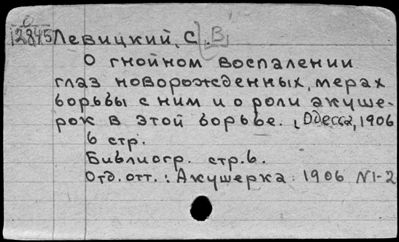 О
12845 Левицкий, С. [В.]
О гнойном воспалении
глаз новорожденных, мерах
борьбы с ним и о роли акуше-
рок в этой борьбе. [Одесса, 1906
6 стр.
Библиогр. стр. 6.
Отд. отт.: Акушерка 1906 N1-2